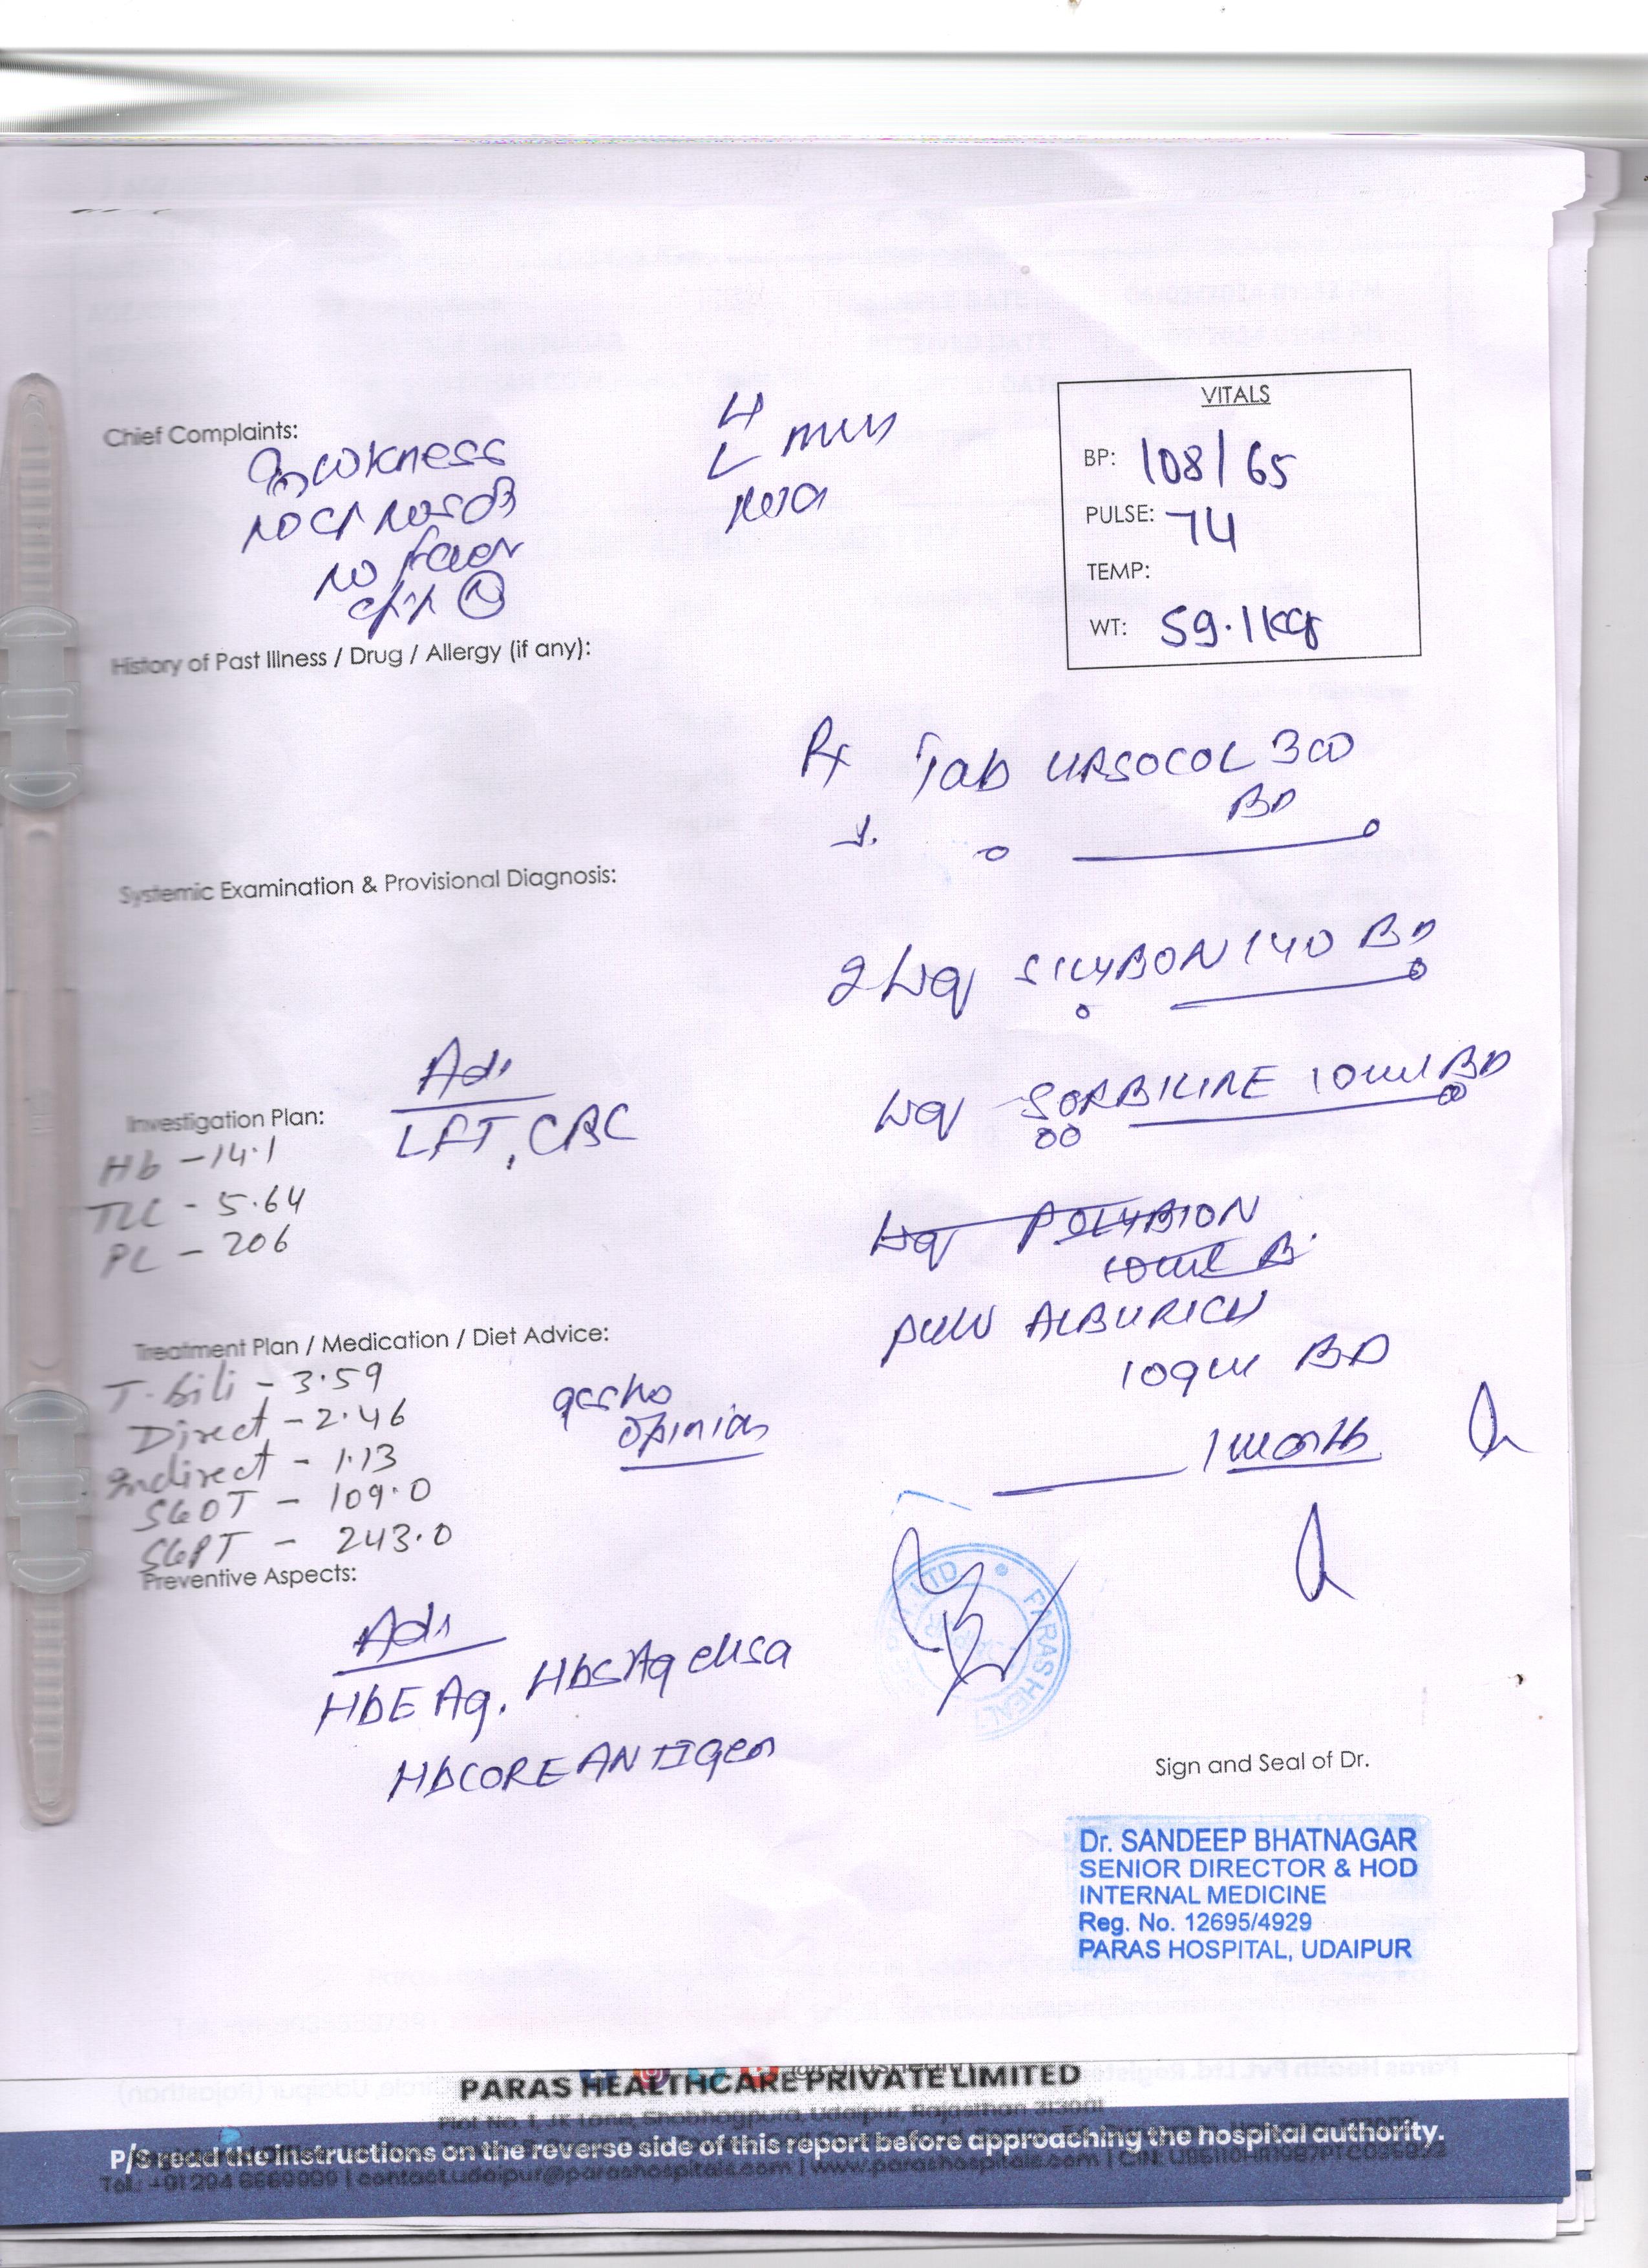 VITALS
BP: 108/65
PULSE: 74
TEMP:
WT: 59.1kg
Chief Complaints:
no fever
History of Past Illness / Drug / Allergy (if any):
Rx Tab URSOCOL 300
BD
Systemic Examination & Provisional Diagnosis:
2 SILYBON 140 BD
Adv
Investigation Plan:
LFT, CBC
SORBILINE 10ml BD
Hb - 14.1
TLC - 5.64
PC - 206
POLYBION
10ml B
ALBURICH
10gm BD
Treatment Plan / Medication / Diet Advice:
T. bili - 3.59
Direct - 2.46
Indirect - 1.13
SGOT - 109.0
SGPT - 243.0
gastro
opinion
1 month
Preventive Aspects:
Adv
HbEAg, HbsAg elisa
HbCORE ANTIgen
LTD PARAS HEALT
Sign and Seal of Dr.
Dr. SANDEEP BHATNAGAR
SENIOR DIRECTOR & HOD
INTERNAL MEDICINE
Reg. No. 12695/4929
PARAS HOSPITAL, UDAIPUR
PARAS HEALTHCARE PRIVATE LIMITED
Plot No. 1, JK Lane, Shobhagpura, Udaipur, Rajasthan 313001
read the instructions on the reverse side of this report before approaching the hospital authority.
Tel.: +91 294 6669999 | contact.udaipur@parashospitals.com | www.parashospitals.com |